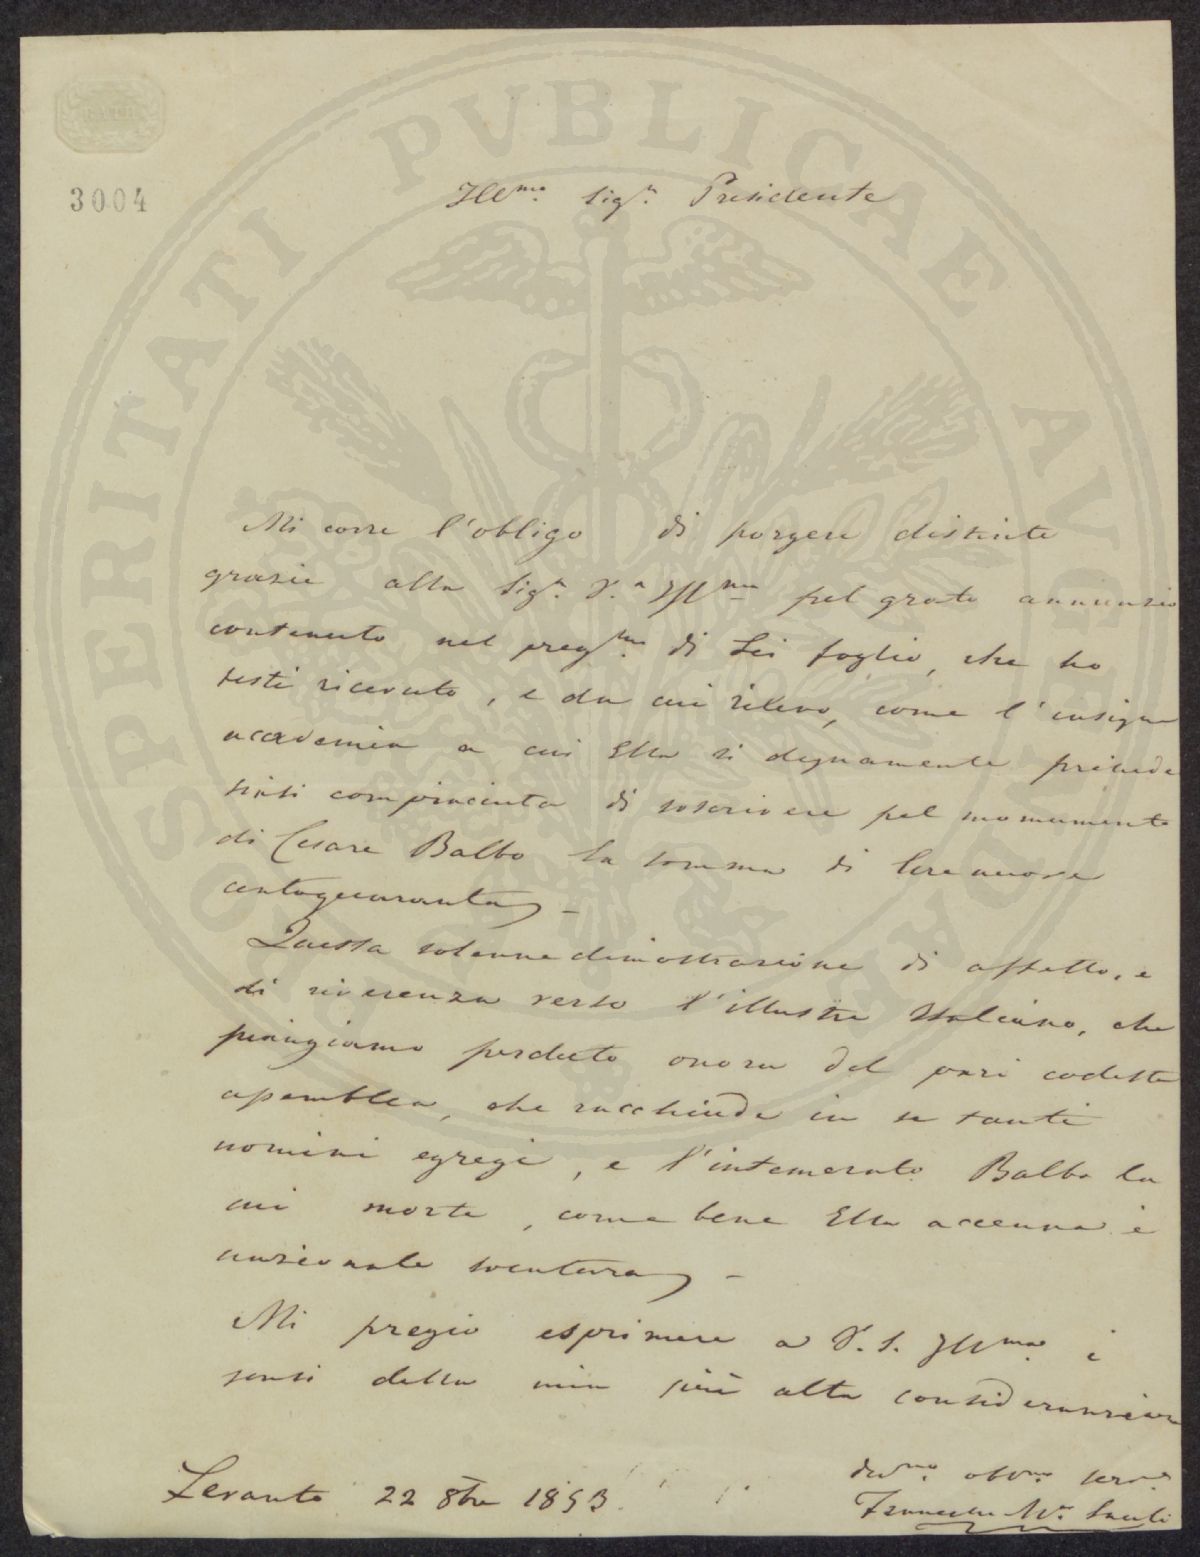 PROSPERITATI PVBLICAE AVGENDAE
BATH
3004
Ill.mo Sig.r Presidente
Mi corre l'obligo di porgere distinte
grazie alla Sig.a V.a Ill.ma pel grato annunzio
contenuto nel preg.mo di Lei foglio, che ho
testè ricevuto, e da cui rilevo, come l'insigne
accademia a cui Ella sì degnamente presiede
siasi compiaciuta di soscrivere pel monumento
di Cesare Balbo la somma di lire nuove
centoquaranta –
Questa solenne dimostrazione di affetto, e
di riverenza verso l'illustre Italiano, che
piangiamo perduto onora del pari codesta
assemblea, che racchiude in se tanti
uomini egregi, e l'intemerato Balbo la
cui morte, come bene Ella accenna è
nazionale sventura –
Mi pregio esprimere a V. S. Ill.ma i
sensi della mia più alta considerazione
Levanto 22 8bre 1853.
dev.mo obb.mo serv.e
Francesco M.a Sauli